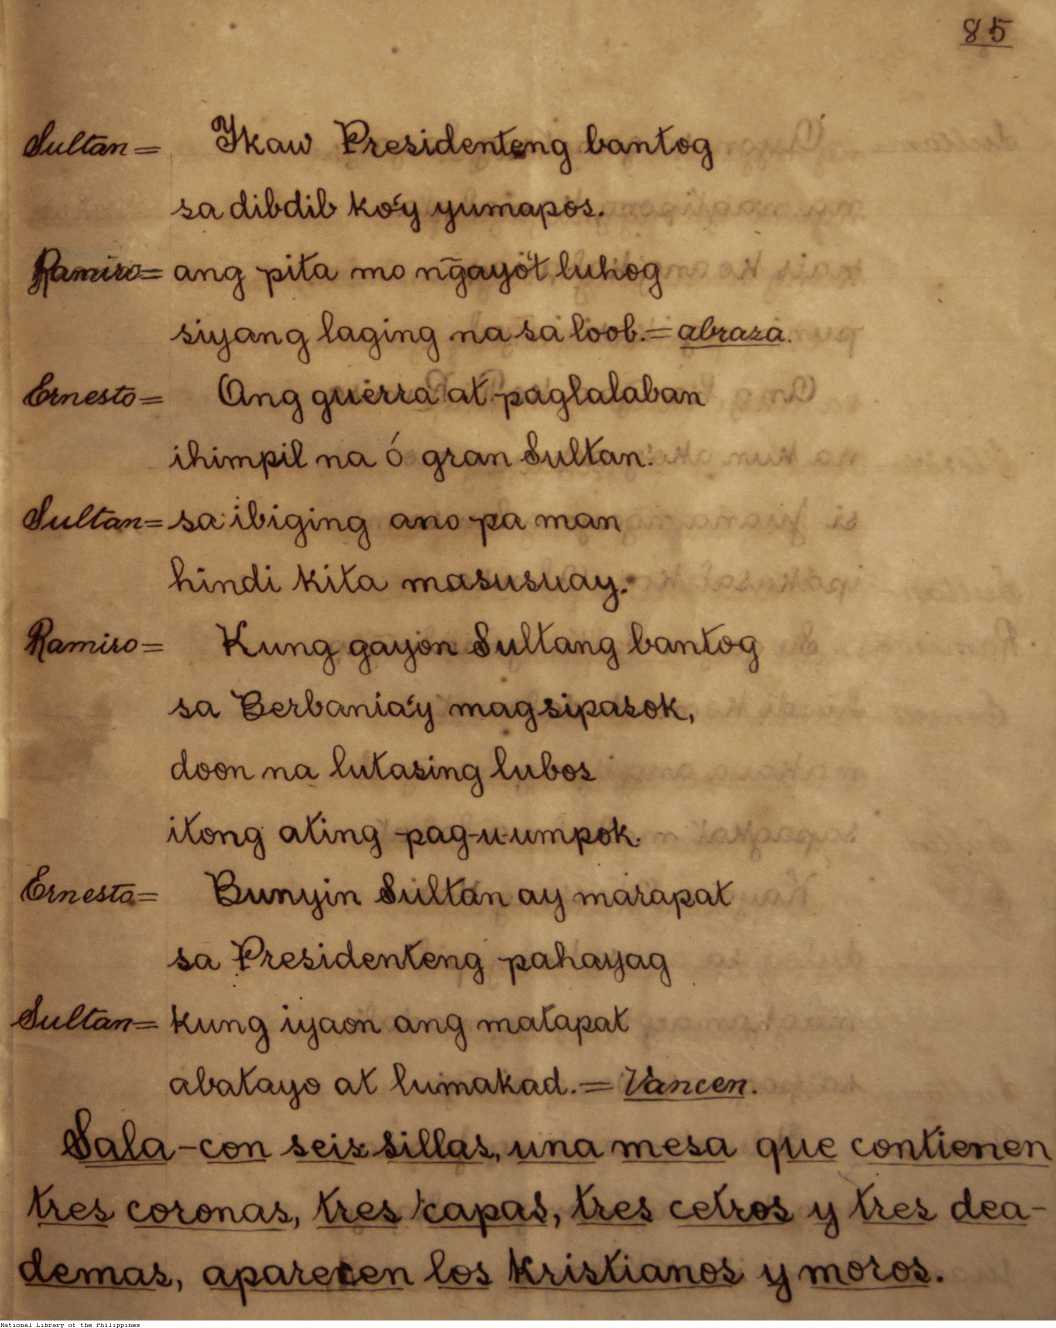 85
Sultan= Ikaw Presidenteng bantog
sa dibdib ko'y yumapos.
Ramiro= ang pita mo ngayo't luhog
siyang laging na sa loob.= abraza.
Ernesto= Ang guerra at paglalaban
ihimpil na ó gran Sultan.
Sultan= sa ibiging ano pa man
hindi kita masusuay.
Ramiro= Kung gayon Sultang bantog
sa Berbania'y magsipasok,
doon na lutasing lubos
itong ating pag-u-umpok.
Ernesto= Bunyin Sultan ay marapat
sa Presidenteng pahayag
Sultan= kung iyaon ang matapat
abatayo at lumakad.= Vancen.
Sala-con seis sillas, una mesa que contienen
tres coronas, tres capas, tres cetros y tres dea-
demas, aparecen los kristianos y moros.
National Library of the Philippines